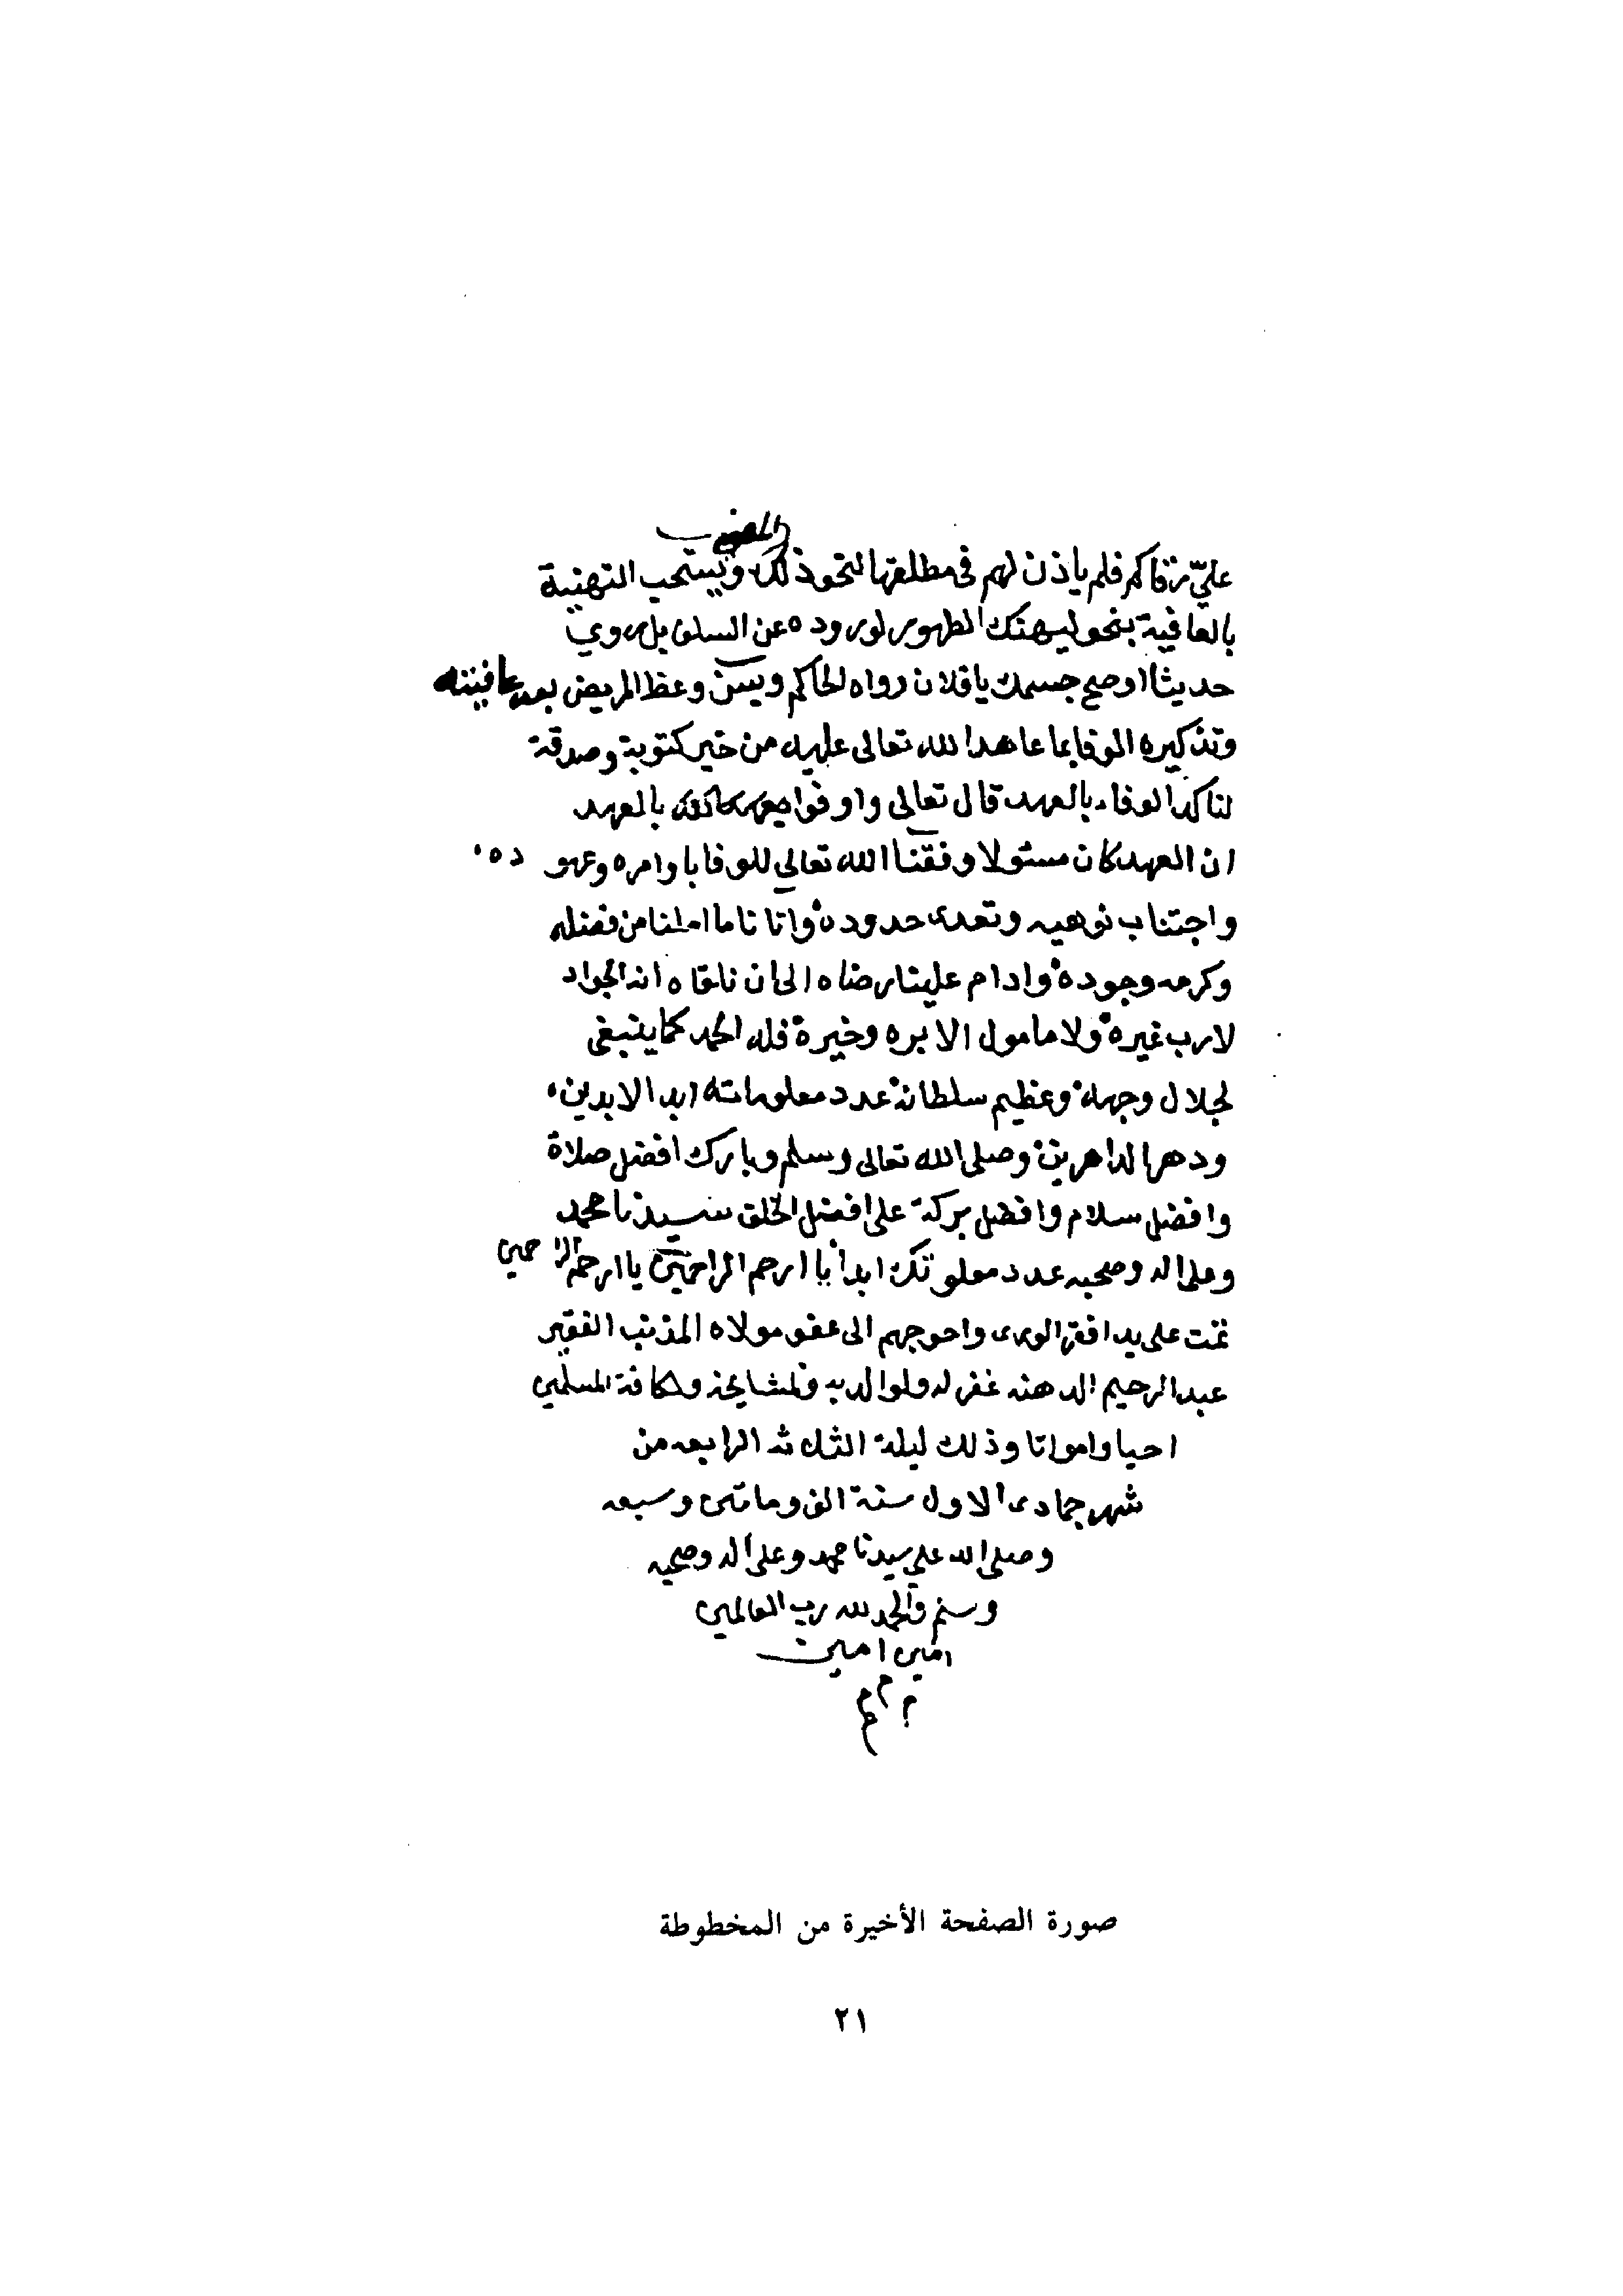 فلم ياذن لهم فى مطلعها لنحو ذلك ويستحب التهنية
بالعافية بنحو ليهنك الطهور لوروده عن السلف بل روي
حديثا اوصح جسمك يافلان رواه الحاكم ويسن وعظ المريض بعد عافيته
وتذكيره الوفا بما عاهد الله تعالى عليه من خير كتوبة وصدقة
لتاكد الوفاء بالعهد قال تعالى واوفوا بالعهد
ان العهد كان مسئولا وفقنا الله تعالى للوفا باوامره وعهو ده
واجتناب نوهيه وتعدى حدوده واتانا ما املنا من فضله
وكرمه وجوده وادام علينا رضاه الى ان نلقاه انه الجواد
لارب غيره ولا مامول الا بره وخيره فله الحمد كما ينبغى
لجلال وجهه وعظيم سلطانه عدد معلوماته ابد الابدين
ودهر الداهرين وصلى الله تعالى وسلم وبارك افضل صلاة
وافضل سلام وافضل بركة على افضل الخلق سيدنا محمد
وعلى اله وصحبه عدد معلو تك ابدا يا ارحم الراحمين يا ارحم الرا حمين
تمت على يد افقر الورى واحوجهم الى عفو مولاه المذنب الفقير
عبد الرحيم الدهنه غفر له ولوالديه ولمشايخه ولكافة المسلمين
احيا وامواتا وذلك ليلة الثلاثه الرابعه من
شهر جمادى الاول سنة الف وماتين وسبعه
وصلى الله على سيدنا محمد وعلى اله وصحبه
وسلم والحمد لله رب العالمين
امين امين
صورة الصفحة الأخيرة من المخطوطة
٢١